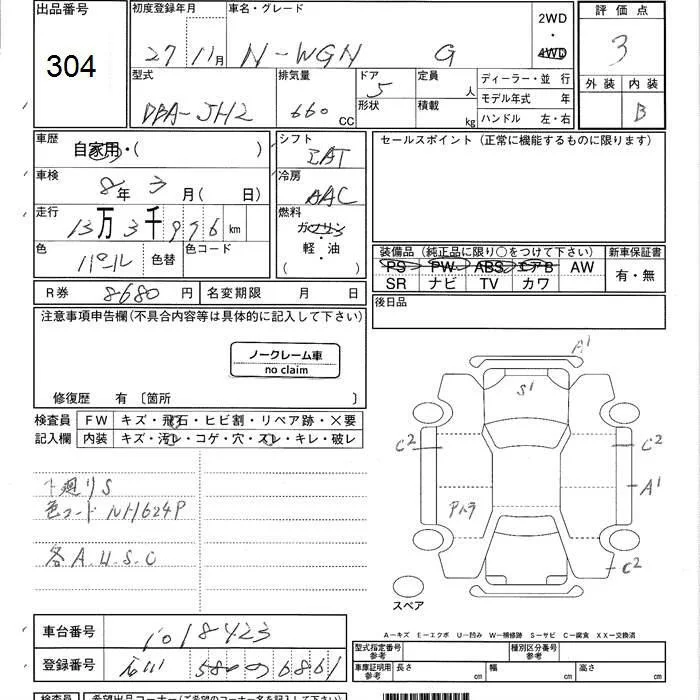 出品番号 初度登録年月 車名・グレード 2WD・4WD 評価点
304
27 11月 N-WGN G 3
型式 排気量 ドア 形状 定員 人 積載 kg ディーラー・並行 モデル年式 年 ハンドル 左・右 外装 内装
DBA-JH2 660 CC 5 B
車歴 自家用・( ) シフト セールスポイント (正常に機能するものに限ります)
車検 8年 3月 ( 日) 冷房 AAC
走行 13万3千996 km 燃料 ガソリン 軽・油 ( )
色 パール 色替 色コード
装備品 (純正品に限り○をつけて下さい) 新車保証書
PS PW ABS エアB AW 有・無
SR ナビ TV カワ
R券 8680 円 名変期限 月 日 後日品
注意事項申告欄(不具合内容等は具体的に記入して下さい)
ノークレーム車
no claim
修復歴 有 〔箇所 〕
検査員 FW キズ・飛石・ヒビ割・リペア跡・×要
記入欄 内装 キズ・汚レ・コゲ・穴・スレ・キレ・破レ
下廻りS
色コード NH624P
各A.U.S.C
A1
S1
C2 C2
A1
アトラ
C2
スペア
車台番号 1018423
登録番号 580 の 6861
A-キズ E-エクボ U-凹み W-補修跡 S-サビ C-腐食 XX-交換済
型式指定番号 参考 種別区分番号 参考
車庫証明用 参考 長さ cm 幅 cm 高さ cm
検査員 希望出品コーナー(ご希望のコーナー名を記入して下さい)